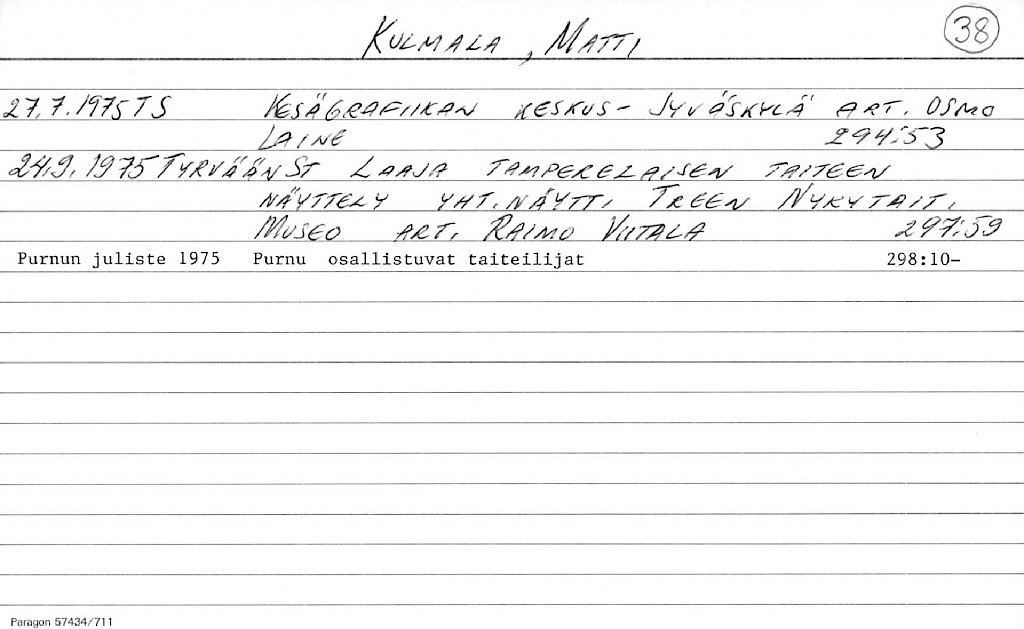 KULMALA, MATTI 38
27.7.1975 TS KESÄGRAFIIKAN KESKUS - JYVÄSKYLÄ ART. OSMO
LAINE 294:53
24.9.1975 TYRVÄÄN ST LAAJA TAMPERELAISEN TAITEEN
NÄYTTELY YHT.NÄYTT. TREEN NYKYTAIT.
MUSEO ART. RAIMO VIITALA 297:59
Purnun juliste 1975 Purnu osallistuvat taiteilijat 298:10-
Paragon 57434/711